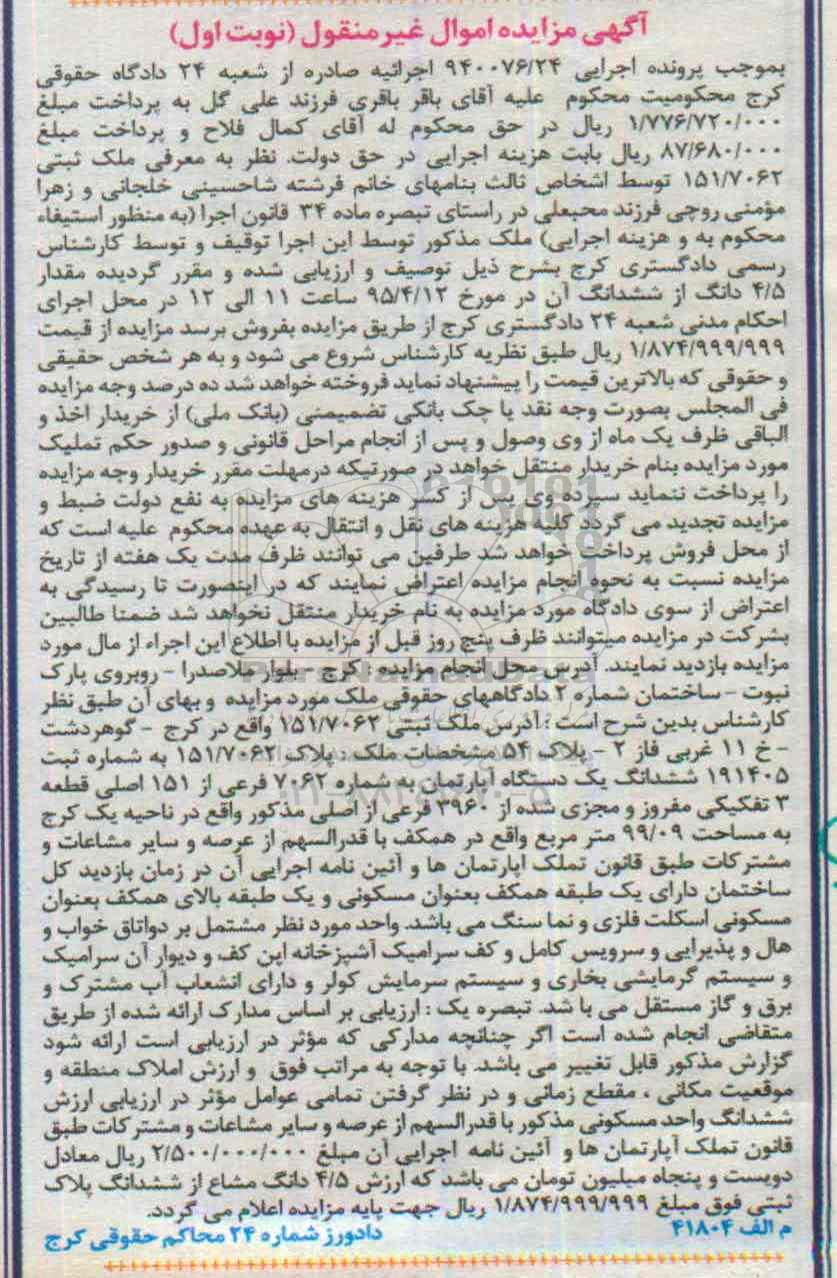 آگهی مزایده اموال غیرمنقول (نوبت اول)
بموجب پرونده اجرایی ۹۴۰۰۷۶/۲۴ اجرائیه صادره از شعبه ۲۴ دادگاه حقوقی
کرج محکومیت محکوم علیه آقای باقر باقری فرزند علی گل به پرداخت مبلغ
۱/۷۷۶/۷۲۰/۰۰۰ ریال در حق محکوم له آقای کمال فلاح و پرداخت مبلغ
۸۷/۶۸۰/۰۰۰ ریال بابت هزینه اجرایی در حق دولت. نظر به معرفی ملک ثبتی
۱۵۱/۷۰۶۲ توسط اشخاص ثالث بنامهای خانم فرشته شاحسینی خلجانی و زهرا
مؤمنی روچی فرزند محبعلی در راستای تبصره ماده ۳۴ قانون اجرا (به منظور استیفاء
محکوم به و هزینه اجرایی) ملک مذکور توسط این اجرا توقیف و توسط کارشناس
رسمی دادگستری کرج بشرح ذیل توصیف و ارزیابی شده و مقرر گردیده مقدار
۴/۵ دانگ از ششدانگ آن در مورخ ۹۵/۴/۱۲ ساعت ۱۱ الی ۱۲ در محل اجرای
احکام مدنی شعبه ۲۴ دادگستری کرج از طریق مزایده بفروش برسد مزایده از قیمت
۱/۸۷۴/۹۹۹/۹۹۹ ریال طبق نظریه کارشناس شروع می شود و به هر شخص حقیقی
و حقوقی که بالاترین قیمت را پیشنهاد نماید فروخته خواهد شد ده درصد وجه مزایده
فی المجلس بصورت وجه نقد یا چک بانکی تضمیمنی (بانک ملی) از خریدار اخذ و
الباقی ظرف یک ماه از وی وصول و پس از انجام مراحل قانونی و صدور حکم تملیک
مورد مزایده بنام خریدار منتقل خواهد در صورتیکه درمهلت مقرر خریدار وجه مزایده
را پرداخت ننماید سپرده وی پس از کسر هزینه های مزایده به نفع دولت ضبط و
مزایده تجدید می گردد کلیه هزینه های نقل و انتقال به عهده محکوم علیه است که
از محل فروش پرداخت خواهد شد طرفین می توانند ظرف مدت یک هفته از تاریخ
مزایده نسبت به نحوه انجام مزایده اعتراض نمایند که در اینصورت تا رسیدگی به
اعتراض از سوی دادگاه مورد مزایده به نام خریدار منتقل نخواهد شد ضمنا طالبین
بشرکت در مزایده میتوانند ظرف پنج روز قبل از مزایده با اطلاع این اجراء از مال مورد
مزایده بازدید نمایند. آدرس محل انجام مزایده : کرج - بلوار ملاصدرا - روبروی پارک
نبوت - ساختمان شماره ۲ دادگاههای حقوقی ملک مورد مزایده و بهای آن طبق نظر
کارشناس بدین شرح است : آدرس ملک ثبتی ۱۵۱/۷۰۶۲ واقع در کرج - گوهردشت
- خ ۱۱ غربی فاز ۲ - پلاک ۵۴ مشخصات ملک : پلاک ۱۵۱/۷۰۶۲ به شماره ثبت
۱۹۱۴۰۵ ششدانگ یک دستگاه آپارتمان به شماره ۷۰۶۲ فرعی از ۱۵۱ اصلی قطعه
۳ تفکیکی مفروز و مجزی شده از ۳۹۶۰ فرعی از اصلی مذکور واقع در ناحیه یک کرج
به مساحت ۹۹/۰۹ متر مربع واقع در همکف با قدرالسهم از عرصه و سایر مشاعات و
مشترکات طبق قانون تملک اپارتمان ها و آئین نامه اجرایی آن در زمان بازدید کل
ساختمان دارای یک طبقه همکف بعنوان مسکونی و یک طبقه بالای همکف بعنوان
مسکونی اسکلت فلزی و نما سنگ می باشد. واحد مورد نظر مشتمل بر دواتاق خواب و
هال و پذیرایی و سرویس کامل و کف سرامیک آشپزخانه اپن کف و دیوار آن سرامیک
و سیستم گرمایشی بخاری و سیستم سرمایش کولر و دارای انشعاب آب مشترک و
برق و گاز مستقل می با شد. تبصره یک : ارزیابی بر اساس مدارک ارائه شده از طریق
متقاضی انجام شده است اگر چنانچه مدارکی که مؤثر در ارزیابی است ارائه شود
گزارش مذکور قابل تغییر می باشد. با توجه به مراتب فوق و ارزش املاک منطقه و
موقعیت مکانی ، مقطع زمانی و در نظر گرفتن تمامی عوامل مؤثر در ارزیابی ارزش
ششدانگ واحد مسکونی مذکور با قدرالسهم از عرصه و سایر مشاعات و مشترکات طبق
قانون تملک آپارتمان ها و آئین نامه اجرایی آن مبلغ ۲/۵۰۰/۰۰۰/۰۰۰ ریال معادل
دویست و پنجاه میلیون تومان می باشد که ارزش ۴/۵ دانگ مشاع از ششدانگ پلاک
ثبتی فوق مبلغ ۱/۸۷۴/۹۹۹/۹۹۹ ریال جهت پایه مزایده اعلام می گردد.
م الف ۴۱۸۰۴ دادورز شماره ۲۴ محاکم حقوقی کرج